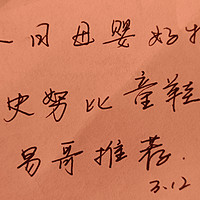 同母婴好
史努比童鞋
易哥推荐.
3.12